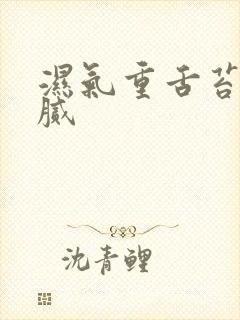 濕氣重舌苔
膩
沈青鲤